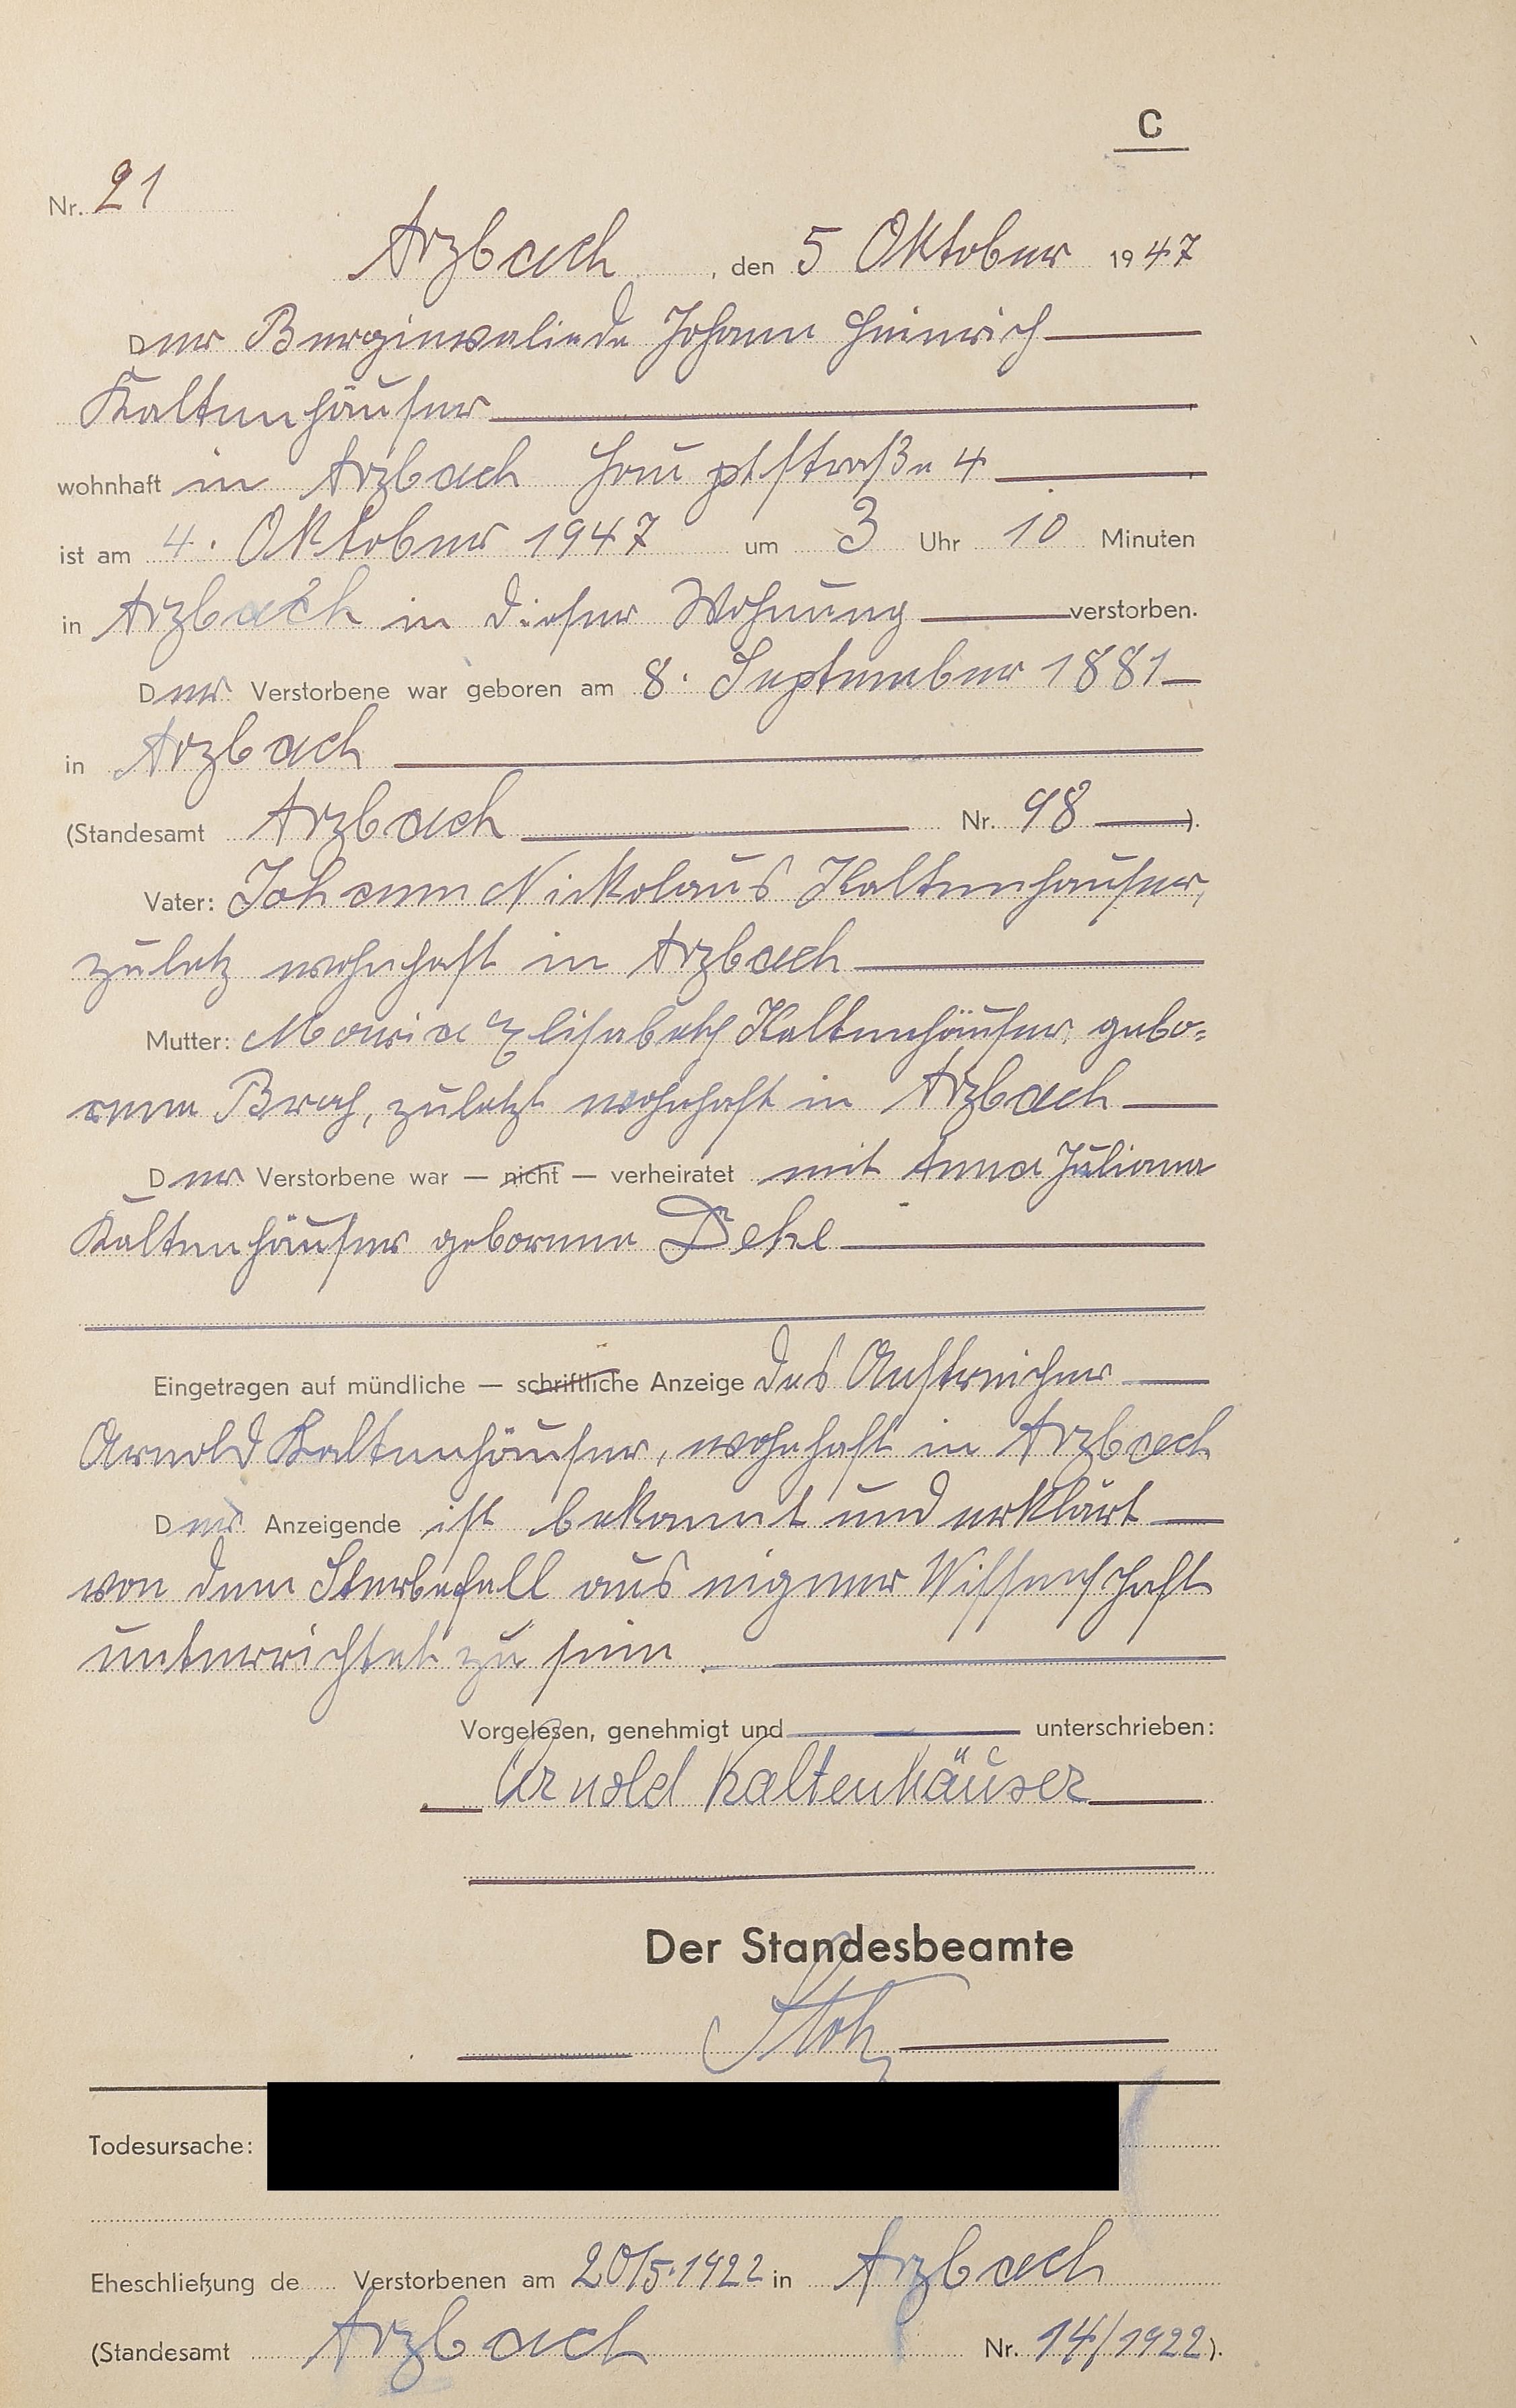 C
Nr. 21
Arzbach, den 5 Oktober 1947
Der Berginvaliede Johann Heinrich
Kaltenhäuser
wohnhaft in Arzbach Hauptstraße 4
ist am 4. Oktober 1947 um 3 Uhr 10 Minuten
in Arzbach in dieser Wohnung verstorben.
Der Verstorbene war geboren am 8. September 1881
in Arzbach
(Standesamt Arzbach Nr. 98).
Vater: Johann Nickolaus Kaltenhauser,
zuletz wohnhaft in Arzbach
Mutter: Maria Elisabeth Kaltenhäuser, gebo=
rene Brach, zuletzt wohnhaft in Arzbach
Der Verstorbene war — nicht — verheiratet mit Anna Juliana
Kaltenhäuser geborene
Eingetragen auf mündliche — schriftliche Anzeige des Anstreicher
Arnold Kaltenhäuser, wohnhaft in Arzbach
Der Anzeigende ist bekannt und erklärt
von dem Sterbefall aus eigner Wissenschaft
unterrichtet zu sein
Vorgelesen, genehmigt und unterschrieben:
Arnold Kaltenhäuser
Der Standesbeamte
Todesursache:
Eheschließung de Verstorbenen am 20/5.1922 in Arzbach
(Standesamt Arzbach Nr. 14/1922).